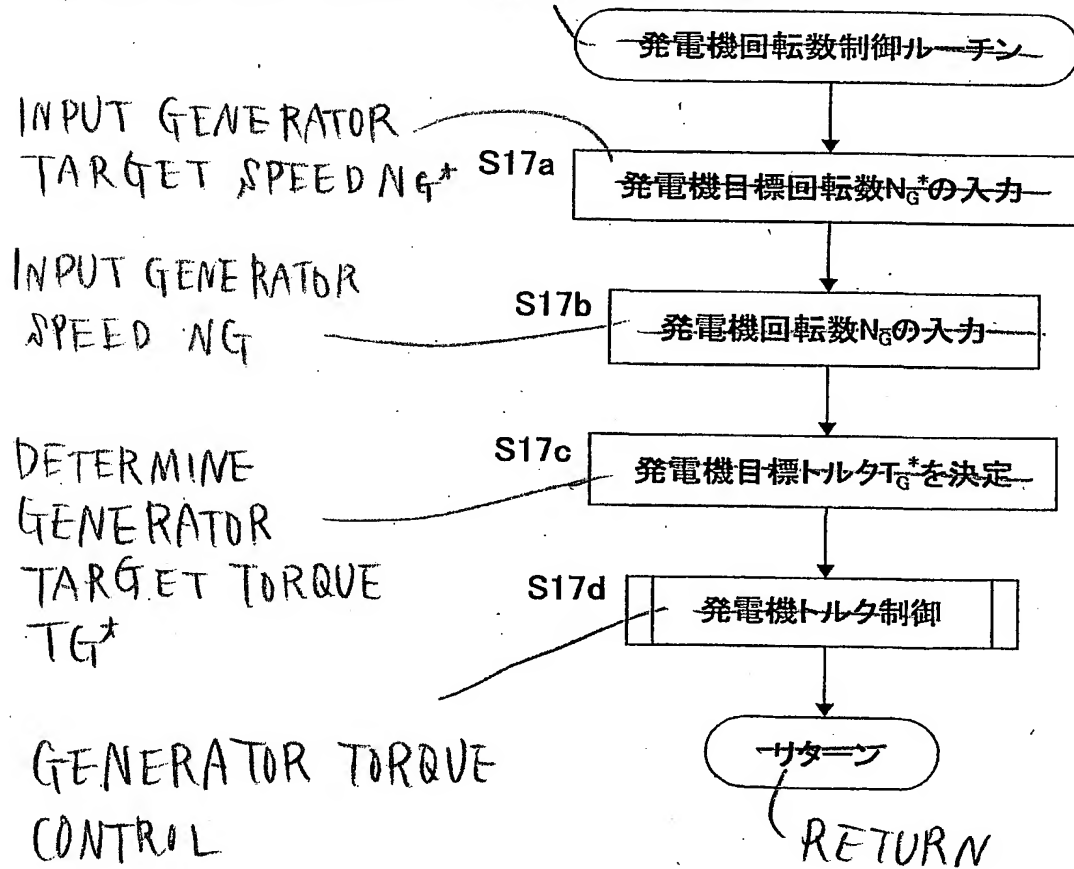 発電機回転数制御ルーチン
INPUT GENERATOR
TARGET SPEED NG*
S17a
発電機目標回転数NG*の入力
INPUT GENERATOR
SPEED NG
S17b
発電機回転数NGの入力
DETERMINE
GENERATOR
TARGET TORQUE
TG*
S17c
発電機目標トルクTG*を決定
S17d
発電機トルク制御
GENERATOR TORQUE
CONTROL
リターン
RETURN